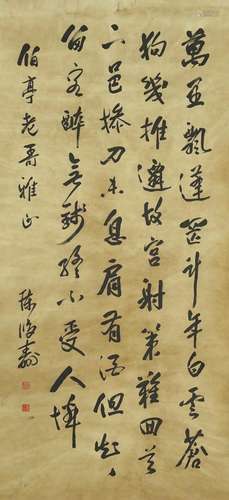 萬里飄蓬計年白雲蒼
狗幾推遷故宮射策難回首
六邑操刀未息肩有酒但
留客醉無錢終不受人憐
伯亭老哥雅正
陳鴻壽